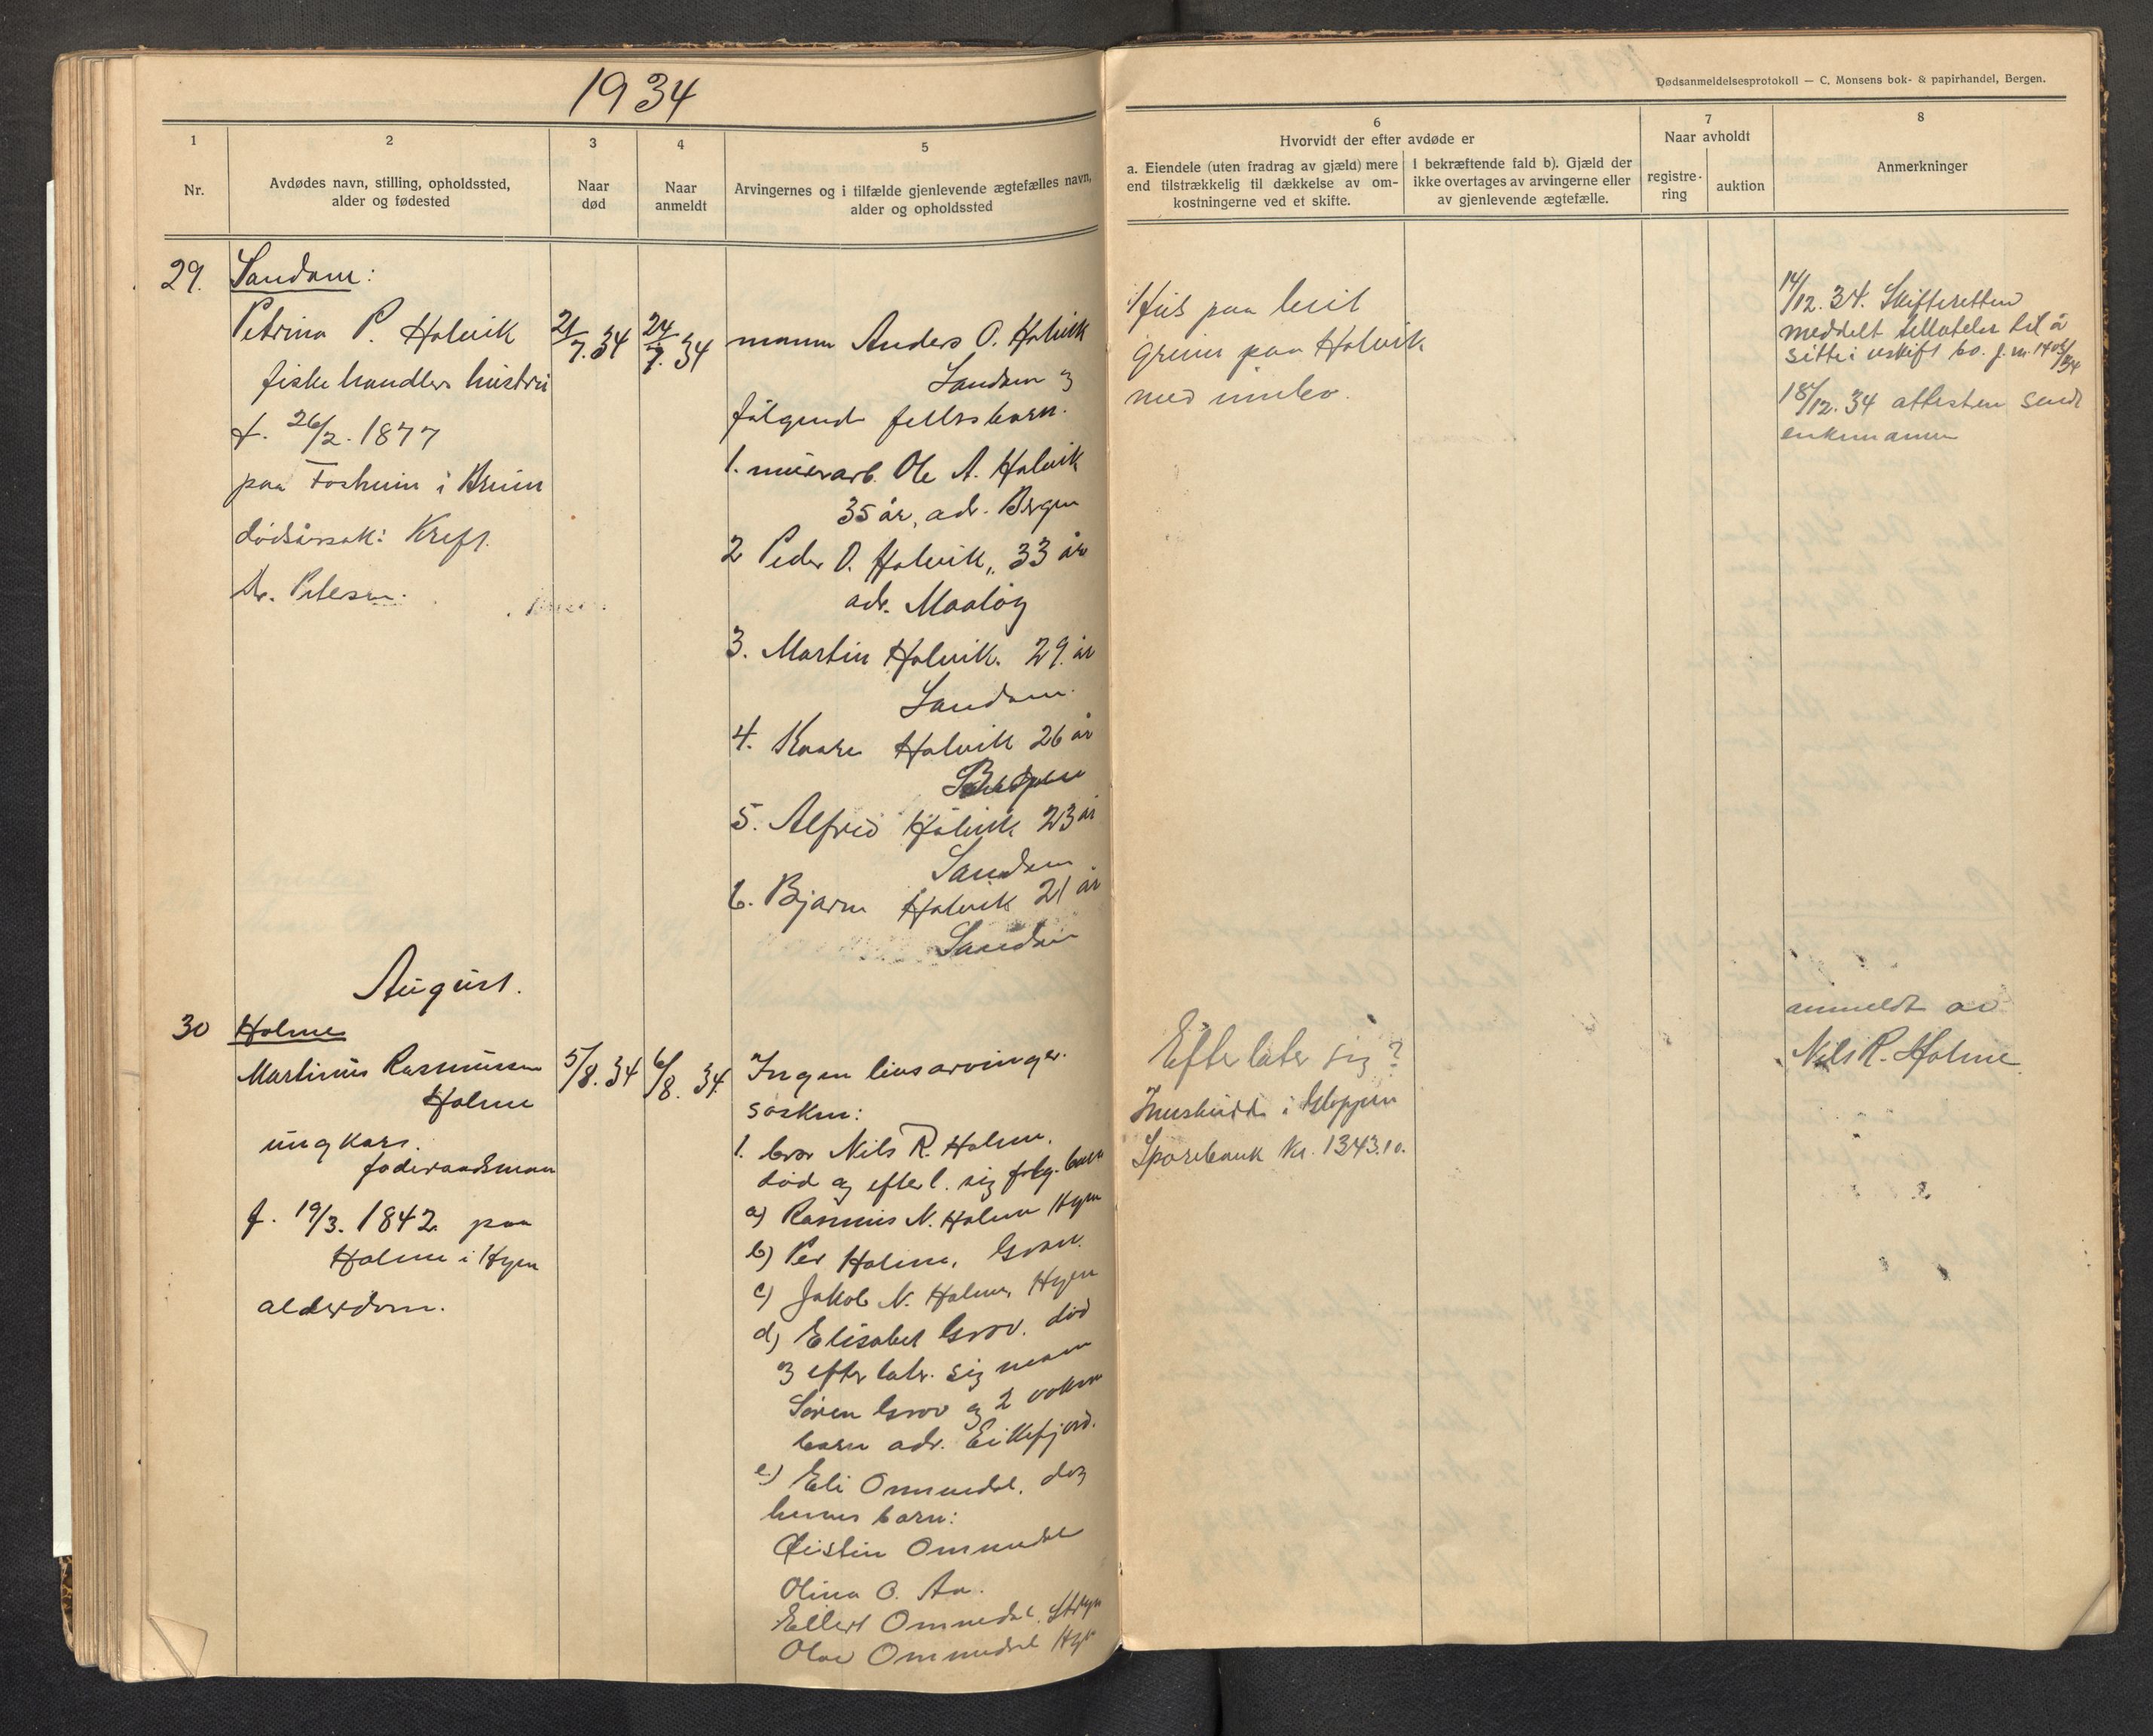 1934
Dødsanmeldelsesprotokoll — C. Monsens bok- & papirhandel, Bergen.
1
Nr.
2
Avdødes navn, stilling, opholdssted,
alder og fødested
3
Naar
død
4
Naar
anmeldt
5
Arvingernes og i tilfælde gjenlevende ægtefælles navn,
alder og opholdssted
6
Hvorvidt der efter avdøde er
a. Eiendele (uten fradrag av gjæld) mere
end tilstrækkelig til dækkelse av om-
kostningerne ved et skifte.
I bekræftende fald b). Gjæld der
ikke overtages av arvingerne eller
av gjenlevende ægtefælle.
7
Naar avholdt
registre-
ring
auktion
8
Anmerkninger
29. Sandane:
Petrina P. Holvik
fiskehandlers hustru
f. 26/2. 1877
paa Fosheim i Breim
dødsårsak: Kreft.
Dr. Petersen.
21/7. 34
24/7. 34
mann Anders O. Holvik
Sandane og
følgende fellesbarn.
1. murerarb. Ole A. Holvik
35 år, adr. Bergen
2 Peder O. Holvik, 33 år
adr. Maaløy
3. Martin Holvik. 29 år
Sandane.
4. Kaare Holvik 26 år
5. Alfred Holvik 23 år
Sandane
6. Bjarne Holvik 21 år
Sandane
Hus paa leid
grunn paa Holvik
med innbo.
14/12. 34. Skifteretten
meddelt tillatelse til å
sitte i uskift bo. j. nr.
18/12. 34 attesten sendt
enkemannen
August.
30 Holme
Martinus Rasmussen
Holme
ungkar.
føderaadsmann
f. 19/3. 1842 paa
Holme i Hyen
alderdom.
5/8. 34
6/8. 34
Ingen livsarvinger.
søsken:
1. bror Nils R. Holme.
død og efterl. sig følg. barn
a) Rasmus N. Holme Hyen
b) Per Holme, Grov.
c) Jakob N. Holme, Hyen
d) Elisabet Grov. død
og efterlater sig mann
Søren Grov og 2 voksne
barn adr. Eikefjord.
e) Eli Ommedal, død
hennes barn:
Kristin Ommedal
Olina O. Aa.
Ellert Ommedal, Stryn
Olai Ommedal Hyen
Efterlater sig?
Innskudd i Gloppen
Sparebank kr. 1343.10.
anmeldt av
Nils R. Holme